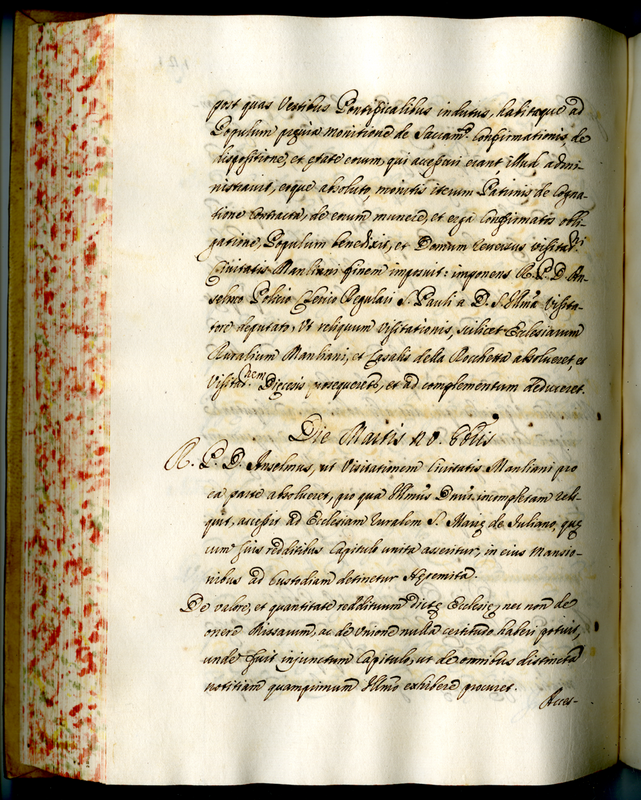 post quas Vestibus Pontificalibus indutus, habitaque ad
Populum prævia monitione de Sacram.to Confirmationis, de
dispositione, et ætate eorum, qui accessuri erant, illud admi-
nistravit, eoque absoluto, monitis iterum Patrinis de Cogna-
tione contracta, de eorum munere, et erga Confirmatos obli-
gatione, Populum benedixit, et Domum reversus visita.ni
Civitatis Manliani finem imposuit: imponens R. P. D. An-
selmo Clerico Regulari S. Pauli a D. S. Illma Visita-
tore deputato, ut reliquum Visitationis, scilicet Ecclesiarum
Ruralium Manliani, et Casalis della Rocchetta absolveret, et
Visita.nem Diæcesis prosequeret.r, et ad complementum deduceret.
Die Martis 20. 8bris
R. P. D. Anselmus, ut Visitationem Civitatis Manliani pro
ea parte absolveret, pro qua Illmus Dnus incompletam reli-
quit, accessit ad Ecclesiam ruralem S. Mariæ de Iuliano, quæ
cum suis redditibus Capitulo unita asseritur, in eius Mansio-
nibus ad Custodiam detinetur Heremita.
De valore, et quantitate reddituum dictæ Ecclesiæ, nec non de
onere Missarum, ac de Unione nulla certitudo haberi potuit,
unde fuit injunctum Capitulo, ut de omnibus distinctam
notitiam quamprimum Illmo exhibere procuret.
Acces-